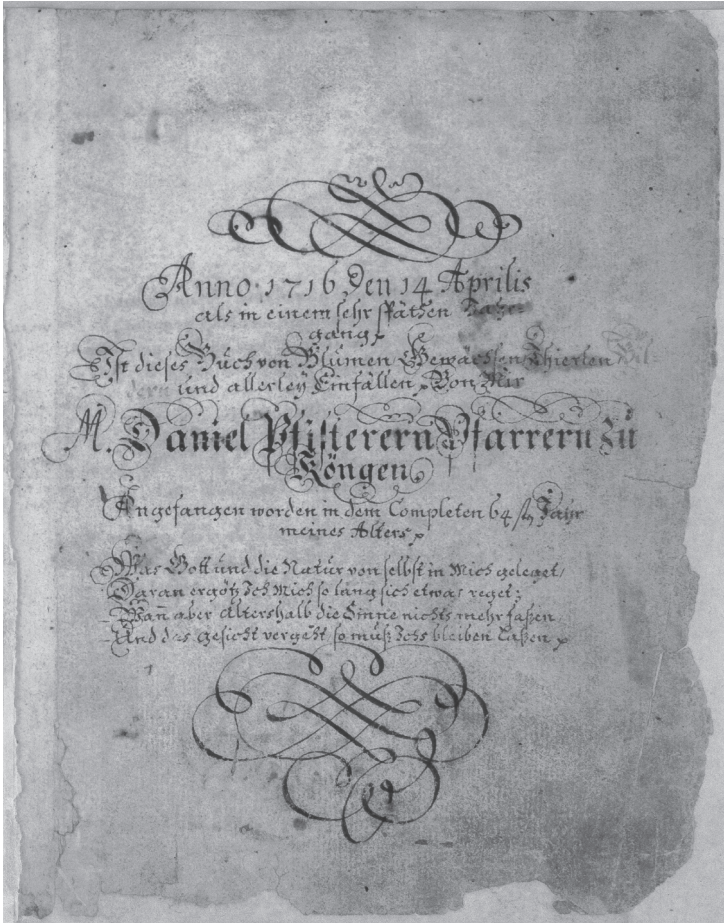 Anno 1716 Den 14 Aprilis
als in einem sehr späthen Jahr-
gang
Ist dieses Büch von Blümen Gewächsen Thierlen Bil-
dern und allerleÿ Einfällen Von Mir
M. Daniel Pfisterern Pfarrern zü
Köngen
Angefangen worden in dem Completen 64 stn Jahr
meines Alters
Was Gott ünd die Natür von selbst in Mich geleget/
Daran ergötz Jch Mich so lang sich etwas reget:
Wañ aber Altershalb die Sinne nichts mehr faßen
Und das gesicht vergeht so müß Jchs bleiben laßen